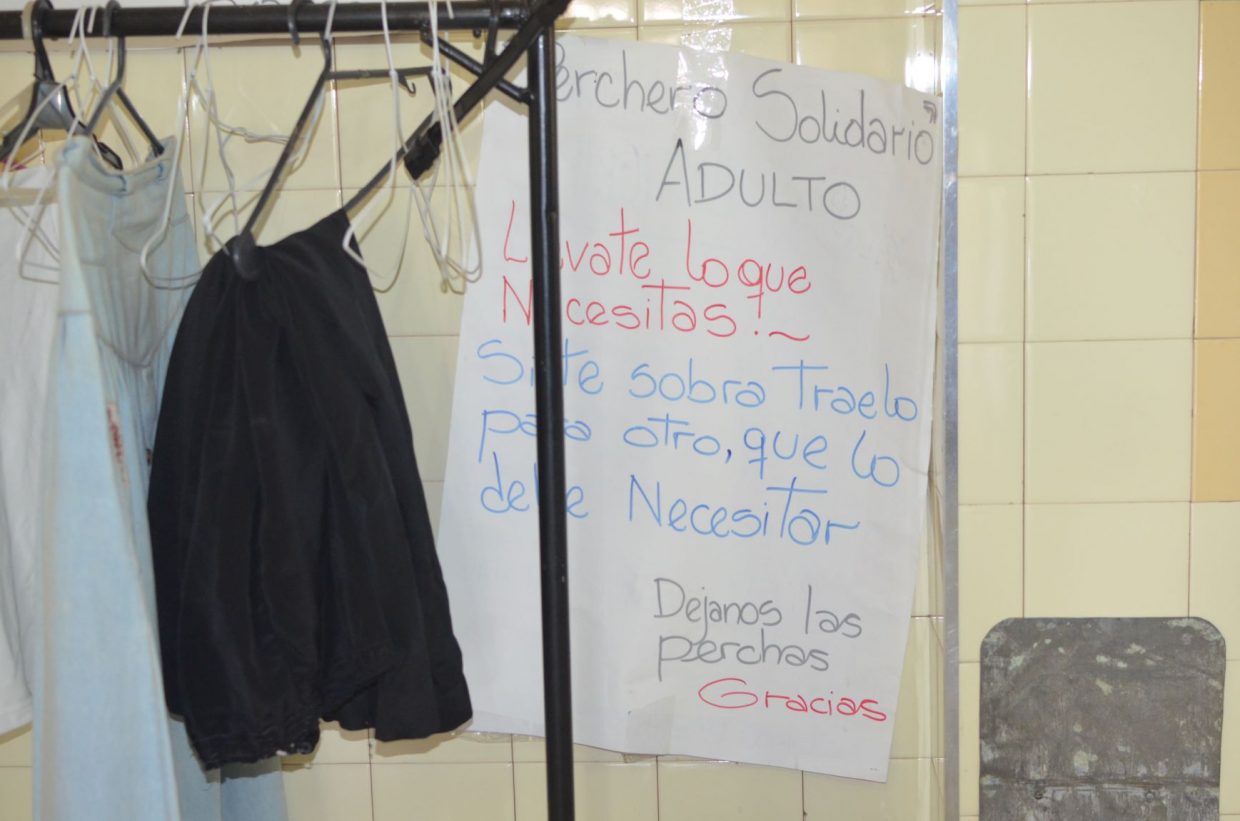 Perchero Solidario"
ADULTO
Llevate lo que
Necesitas!~
Si te sobra Traelo
para otro, que lo
debe Necesitar
Dejanos las
perchas
Gracias